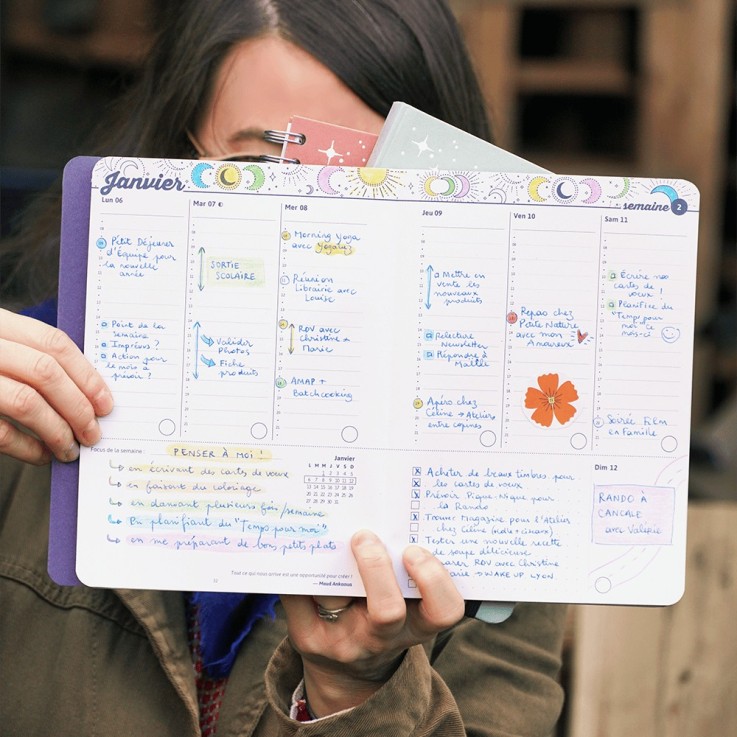 Janvier
semaine 2
Lun 06
Petit Déjeuner
d'Équipe pour
la nouvelle
année
Point de la
semaine
Imprévus ?
Action pour
le mois à
prévoir ?
Mar 07
SORTIE
SCOLAIRE
Valider
Photos
Fiche
produits
Mer 08
Morning Yoga
avec
Réunion
Librairie avec
Louise
RDV avec
Christine &
Marie
AMAP +
Batchcooking
Jeu 09
Mettre en
vente les
nouveaux
produits
Relecture
Newsletter
Répondre à
Apéro chez
Céline → Atelier
entre copines
Ven 10
Repas chez
Petite Nature
avec mon
Amoureux
Sam 11
Écrire nos
cartes de
voeux !
Planifier du
"Temps pour
moi" ce
mois-ci
Soirée Film
en Famille
Focus de la semaine :
PENSER À MOI !
en écrivant des cartes de voeux
en faisant du coloriage
en dansant plusieurs fois/semaine
En planifiant du "Temps pour moi"
en me préparant de bons petits plats
Janvier
L M M J V S D
1 2 3 4 5
6 7 8 9 10 11 12
13 14 15 16 17 18 19
20 21 22 23 24 25 26
27 28 29 30 31
Tout ce qui nous arrive est une opportunité pour créer !
— Maud Ankaoua
12
Acheter de beaux timbres pour
les cartes de voeux
Prévoir Pique-Nique pour
la Rando
Trouver magazine pour l'Atelier
chez Céline
Tester une nouvelle recette
de soupe délicieuse
RDV avec Christine
→ WAKE UP LYON
Dim 12
RANDO À
CANCALE
avec Valérie